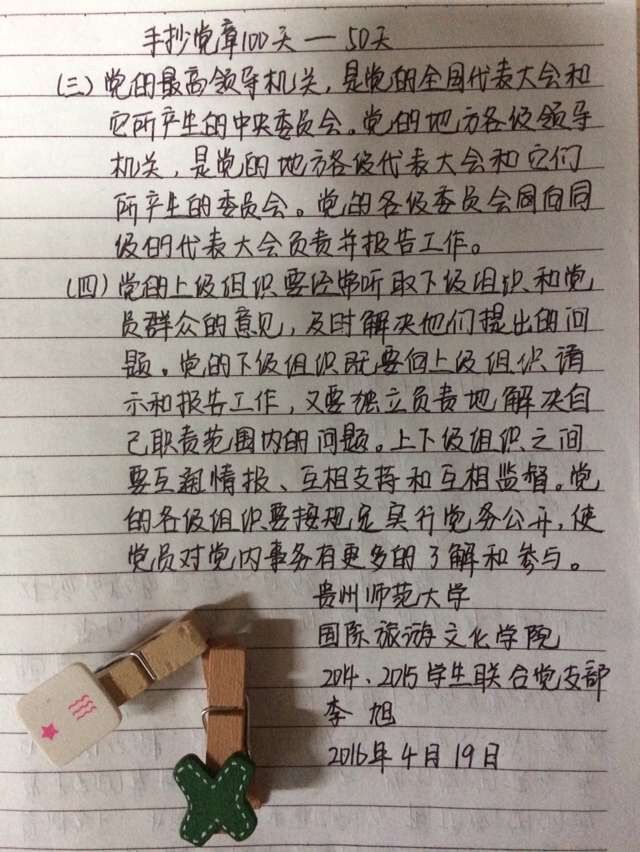 手抄党章100天—50天
(三)党的最高领导机关,是党的全国代表大会和
它所产生的中央委员会。党的地方各级领导
机关,是党的地方各级代表大会和它们
所产生的委员会。党的各级委员会同向同
级的代表大会负责并报告工作。
(四)党的上级组织要经常听取下级组织和党
员群众的意见,及时解决他们提出的问
题。党的下级组织既要向上级组织请
示和报告工作,又要独立负责地解决自
己职责范围内的问题。上下级组织之间
要互通情报、互相支持和互相监督。党
的各级组织要按规定实行党务公开,使
党员对党内事务有更多的了解和参与。
贵州师范大学
国际旅游文化学院
2014、2015学生联合党支部
李旭
2016年4月19日